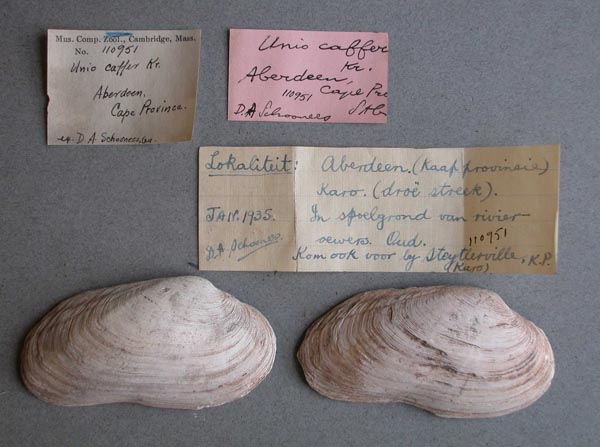 Mus. Comp. Zool., Cambridge, Mass.
No. 110951
Unio caffer Kr.
Aberdeen,
Cape Province.
ex. D. A. Schoonees,
Unio caffer
Kr.
Aberdeen,
110951 Cape Pro
D. A Schoonees
Lokaliteit: Aberdeen. (Kaap provinsie)
Karo. (droë streek).
JAN. 1935. In spoelgrond van rivier-
D. A. Schoonees oewers. Oud. 110951
Kom ook voor by Steytlerville, K.P.
(Karo)